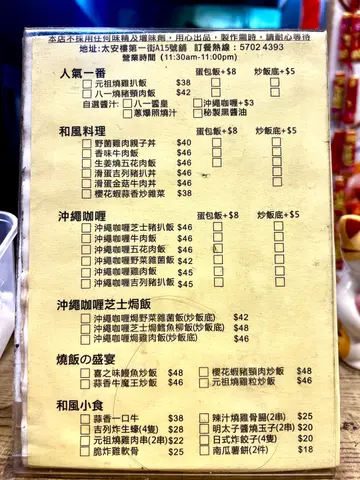 本店不採用任何味精及增味劑，用心出品，製作需時，請耐心等待
地址:太安樓第一街A15號舖 訂餐熱線:5702 4393
營業時間 (11:30am-11:00pm)
人氣一番 蛋包飯+$8 炒飯底+$5
元祖燒雞扒飯 $38
八一燒豬頸肉飯 $42
自選醬汁: 八一醬皇 沖繩咖喱+$3
蔥爆照燒汁 秘製黑醬油
和風料理 蛋包飯+$8 炒飯底+$5
野菌雞肉親子丼 $40
香味牛肉飯 $46
生姜燒五花肉飯 $46
滑蛋吉列豬扒丼 $46
滑蛋金菇牛肉丼 $46
櫻花蝦蒜香炒雜菜 $38
沖繩咖喱 蛋包飯+$8 炒飯底+$5
沖繩咖喱芝士豬扒飯 $46
沖繩咖喱牛肉飯 $46
沖繩咖喱五花肉飯 $46
沖繩咖喱野菜雜菌飯 $42
沖繩咖喱雞肉飯 $45
沖繩咖喱吉列豬扒飯 $46
沖繩咖喱芝士焗飯
沖繩咖喱焗野菜雜菌飯(炒飯底) $42
沖繩咖喱芝士焗鱈魚柳飯(炒飯底) $48
沖繩咖喱焗雞肉飯(炒飯底) $46
燒飯の盛宴
喜之味鰻魚炒飯 $48 櫻花蝦豬頸肉炒飯 $48
蒜香牛魔王炒飯 $46 元祖燒雞粒炒飯 $46
和風小食
蒜香一口牛 $38 辣汁燒雞骨腸(2串) $25
吉列炸生蠔(4隻) $28 明太子醬燒玉子(2串) $20
元祖燒雞肉串(2串) $22 日式炸餃子(4隻) $20
脆炸雞軟骨 $25 南瓜薯餅(2件) $18